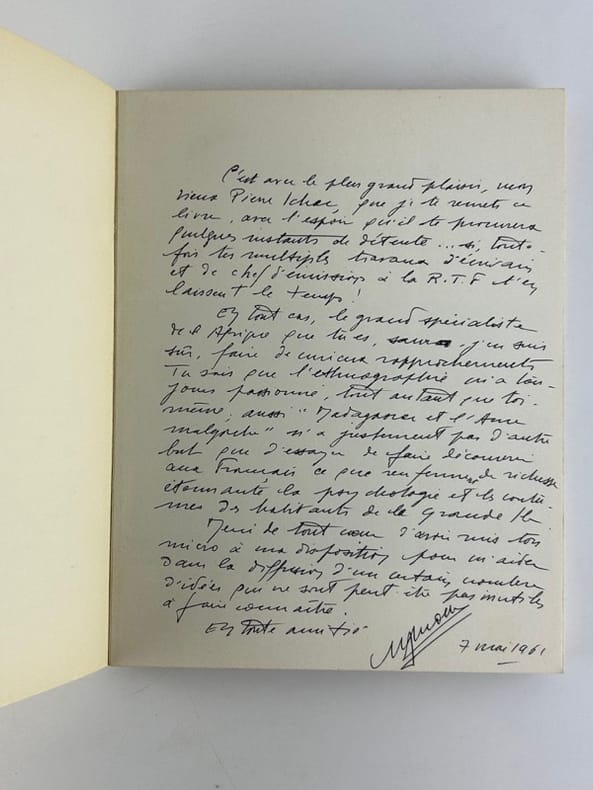 C'est avec le plus grand plaisir, mon
vieux Pierre Ichac, que je te remets ce
livre, avec l'espoir qu'il te procurera
quelques instants de détente... si, toute-
fois tes multiples travaux d'écrivain
et de chef d'émissions à la R.T.F t'en
laissent le temps !
En tout cas, le grand spécialiste
de l'Afrique que tu es, saura, j'en suis
sûr, faire de curieux rapprochements
Tu sais que l'ethnographie m'a tou-
jours passionné, tout autant que toi-
même ; aussi "Madagascar et l'Ame
malgache" n'a justement pas d'autre
but que d'essayer de faire découvrir
aux Français ce que renferme de richesse
étonnante la psychologie et les coutu-
mes des habitants de la Grande Ile
Merci de tout coeur d'avoir mis ton
micro à ma disposition pour m'aider
dans la diffusion d'un certain nombre
d'idées qui ne sont peut être pas inutiles
à faire connaître.
En toute amitié
7 mai 1961